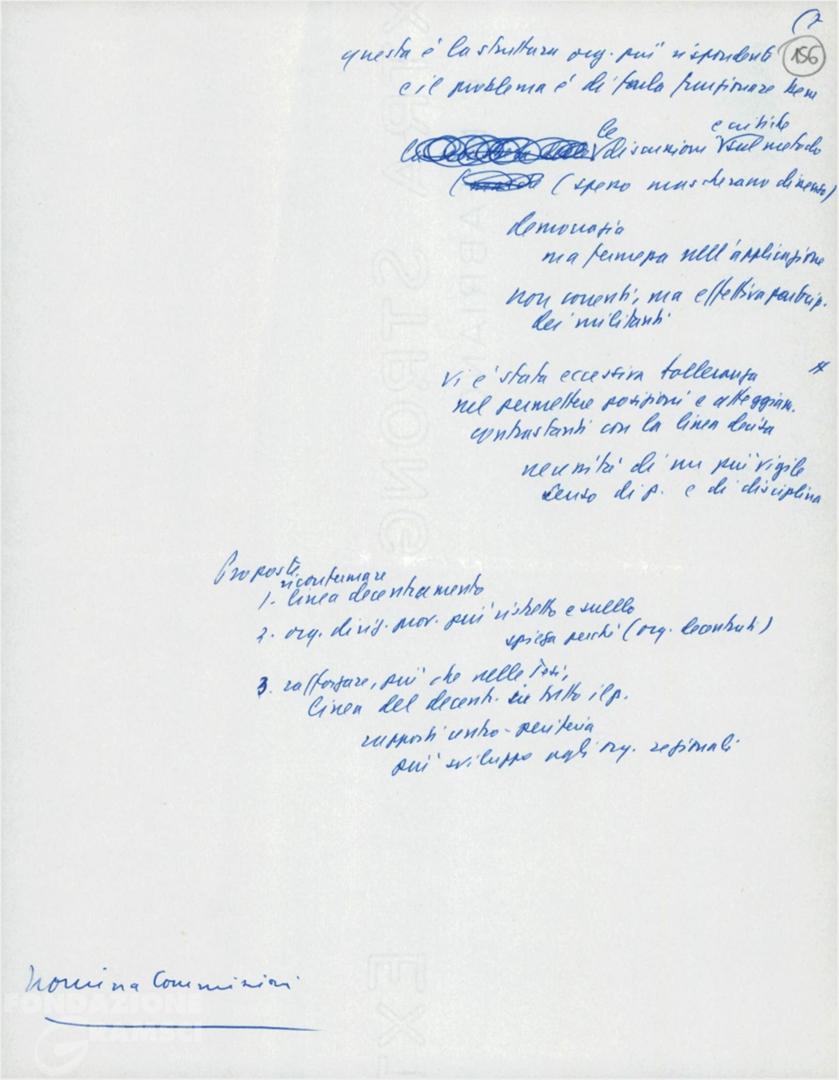 156
questa è la struttura org. più rispondente
e il problema è di farla funzionare bene
le e critiche
discussione sul metodo
(spesso mascherano dissenso)
democrazia
ma fermezza nell'applicazione
non correnti, ma effettiva particip.
dei militanti
vi è stata eccessiva tolleranza
nel permettere posizioni e atteggiam.
contrastanti con la linea decisa
necessità di un più vigile
senso di p. e di disciplina
Proposte
riconfermare
1. linea decentramento
2. org. dirig. prov. più ristretto e snello
spiega perché (org. decentrati)
3. rafforzare, più che nelle Tesi,
linea del decentr. in tutto il p.
rapporti centro-periferia
più sviluppo agli org. regionali
Nomina Commissioni
FONDAZIONE
GRAMSCI
EXTRA STRONG
FABRIANO
EX